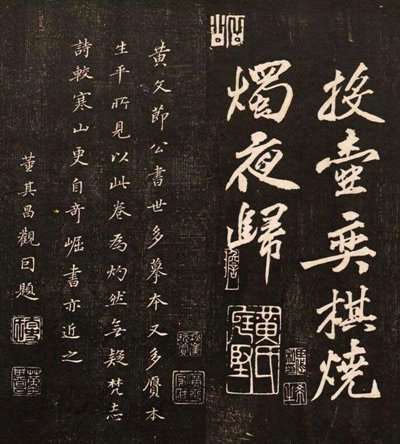 投壺奕棋燒
燭夜歸
黃氏庭堅
黃文節公書世多摹本又多贗本
生平所見以此卷為灼然無疑梵志
詩較寒山更自奇崛書亦近之
董其昌觀因題